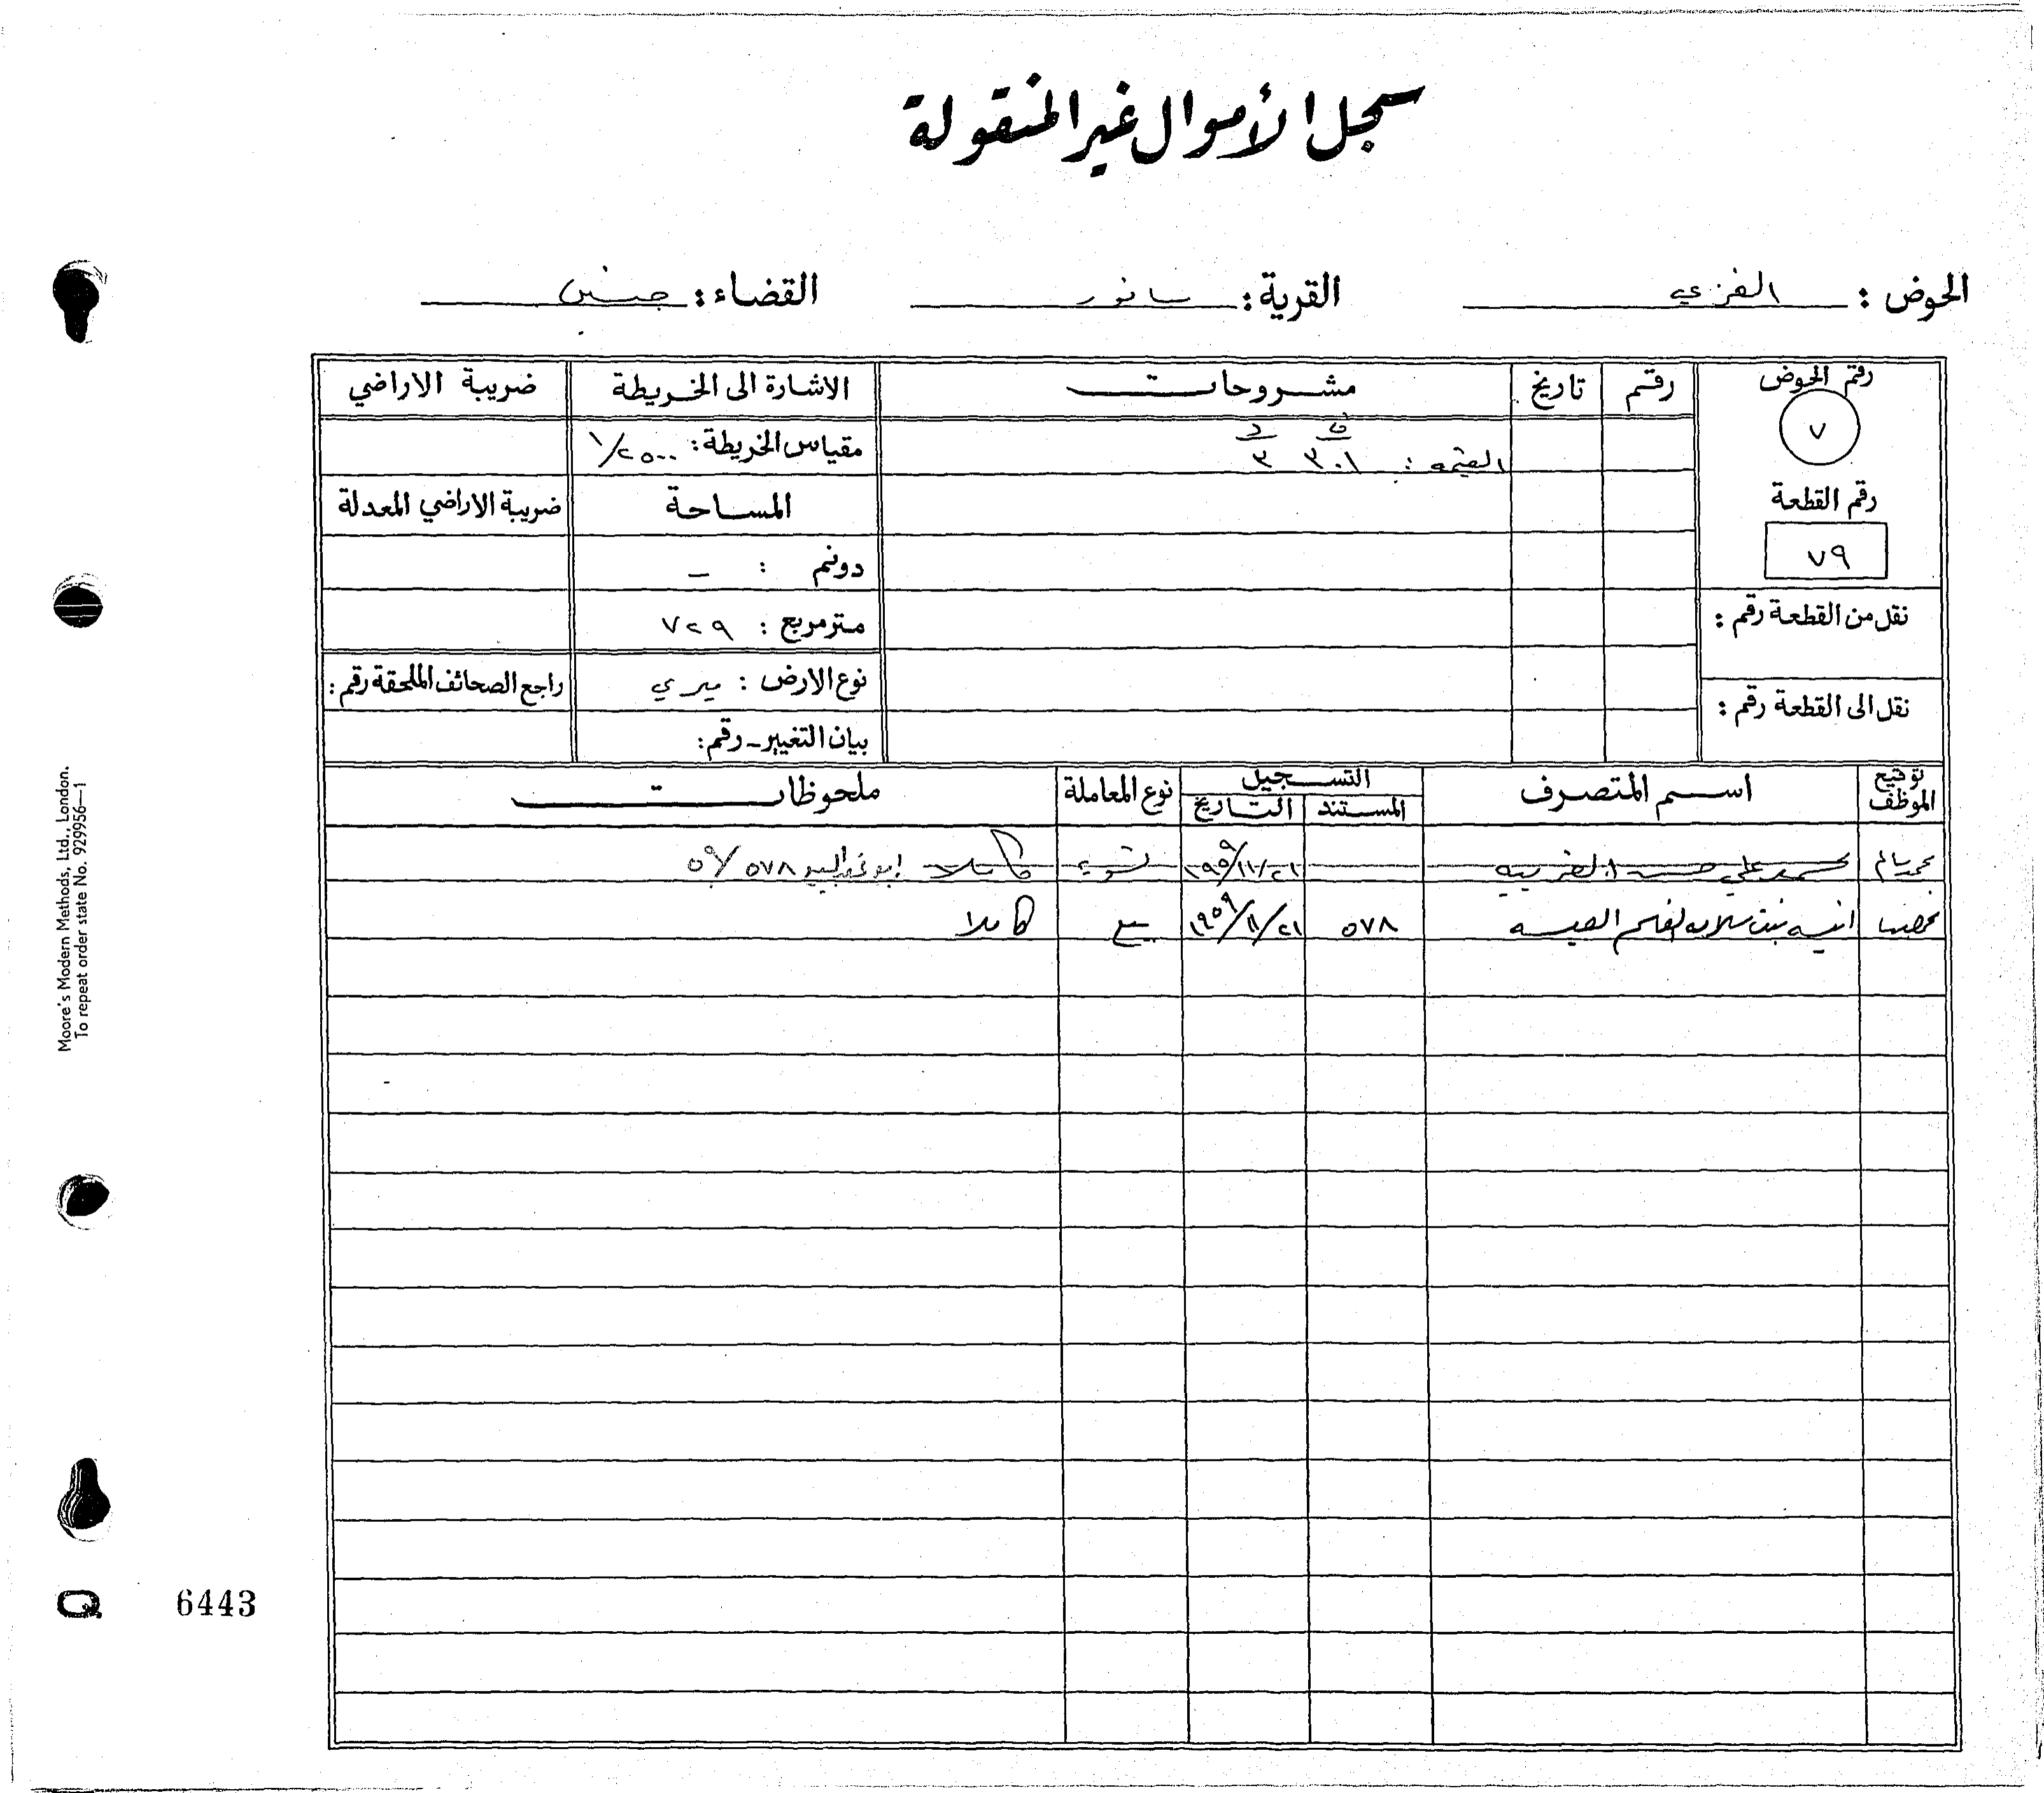 سجل الأموال غير المنقولة
الحوض : الغزي القرية : سانور القضاء : جنين
رقم الحوض رقم تاريخ مشروحات الاشارة الى الخريطة ضريبة الاراضي
٧
ف د
القيمة : ٣٠١ ٣
مقياس الخريطة : ١/٢٥٠٠
رقم القطعة
٧٩
المساحة ضريبة الاراضي المعدلة
دونم : –
نقل من القطعة رقم :
متر مربع : ٧٢٩
نوع الارض : ميري راجع الصحائف الملحقة رقم :
نقل الى القطعة رقم :
بيان التغيير - رقم :
توقيع الموظف اسم المتصرف التسجيل نوع المعاملة ملحوظات
المستند التاريخ
محمد علي حسن ٢١/١١/١٩٥٩ تسوية كاملا ٥٧٨/٥٩
انيسه بنت ٥٧٨ ٢١/١١/١٩٥٩ بيع كاملا
Moore's Modern Methods, Ltd., London.
To repeat order state No. 929956—1
Q 6443